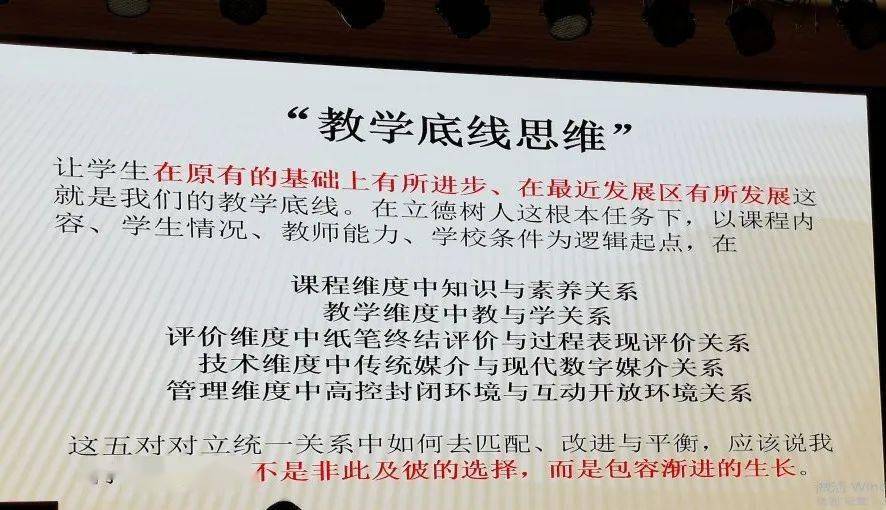 “教学底线思维”
让学生在原有的基础上有所进步、在最近发展区有所发展这
就是我们的教学底线。在立德树人这根本任务下，以课程内
容、学生情况、教师能力、学校条件为逻辑起点，在
课程维度中知识与素养关系
教学维度中教与学关系
评价维度中纸笔终结评价与过程表现评价关系
技术维度中传统媒介与现代数字媒介关系
管理维度中高控封闭环境与互动开放环境关系
这五对对立统一关系中如何去匹配、改进与平衡，应该说我
不是非此及彼的选择，而是包容渐进的生长。
激活 Win